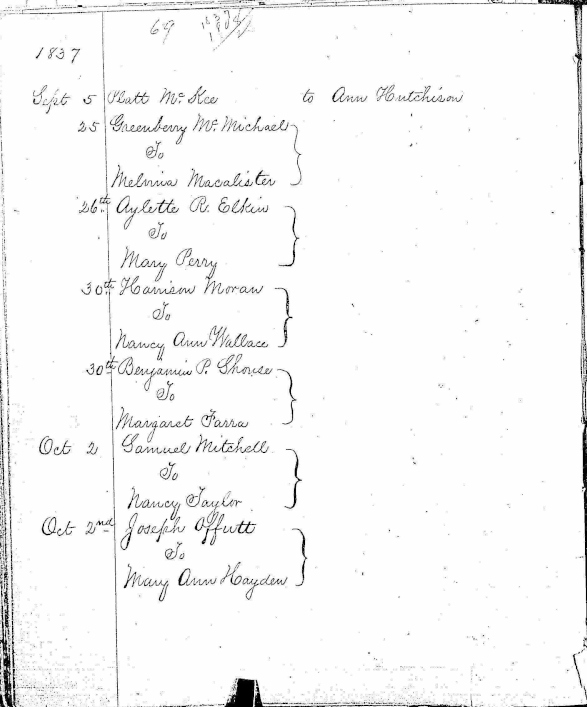 69
1837
Sept 5 Platt Mc Kee to Ann Hutchison
25 Greenberry Mc Michael
To
Melvina Macalister
26th Aylette R. Elkin
To
Mary Perry
30th Harrison Moran
To
Nancy Ann Wallace
30th Benjamin P. Shouse
To
Margaret Farra
Oct 2 Samuel Mitchell
To
Nancy Taylor
Oct 2nd Joseph Offutt
To
Mary Ann Hayden